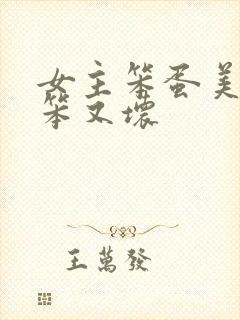 女主笨蛋美
笨又壞
王萬發